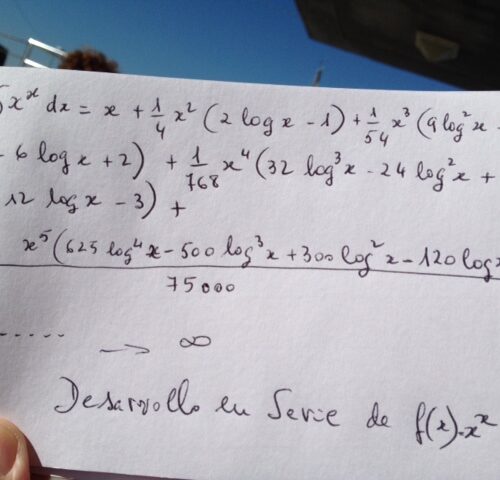 ∫x^x dx = x + 1/4 x² (2 log x - 1) + 1/54 x³ (9 log² x
- 6 log x + 2) + 1/768 x⁴ (32 log³ x - 24 log² x +
12 log x - 3) +
x⁵ (625 log⁴ x - 500 log³ x + 300 log² x - 120 log x
75000
..... → ∞
Desarrollo en Serie de f(x)=x^x